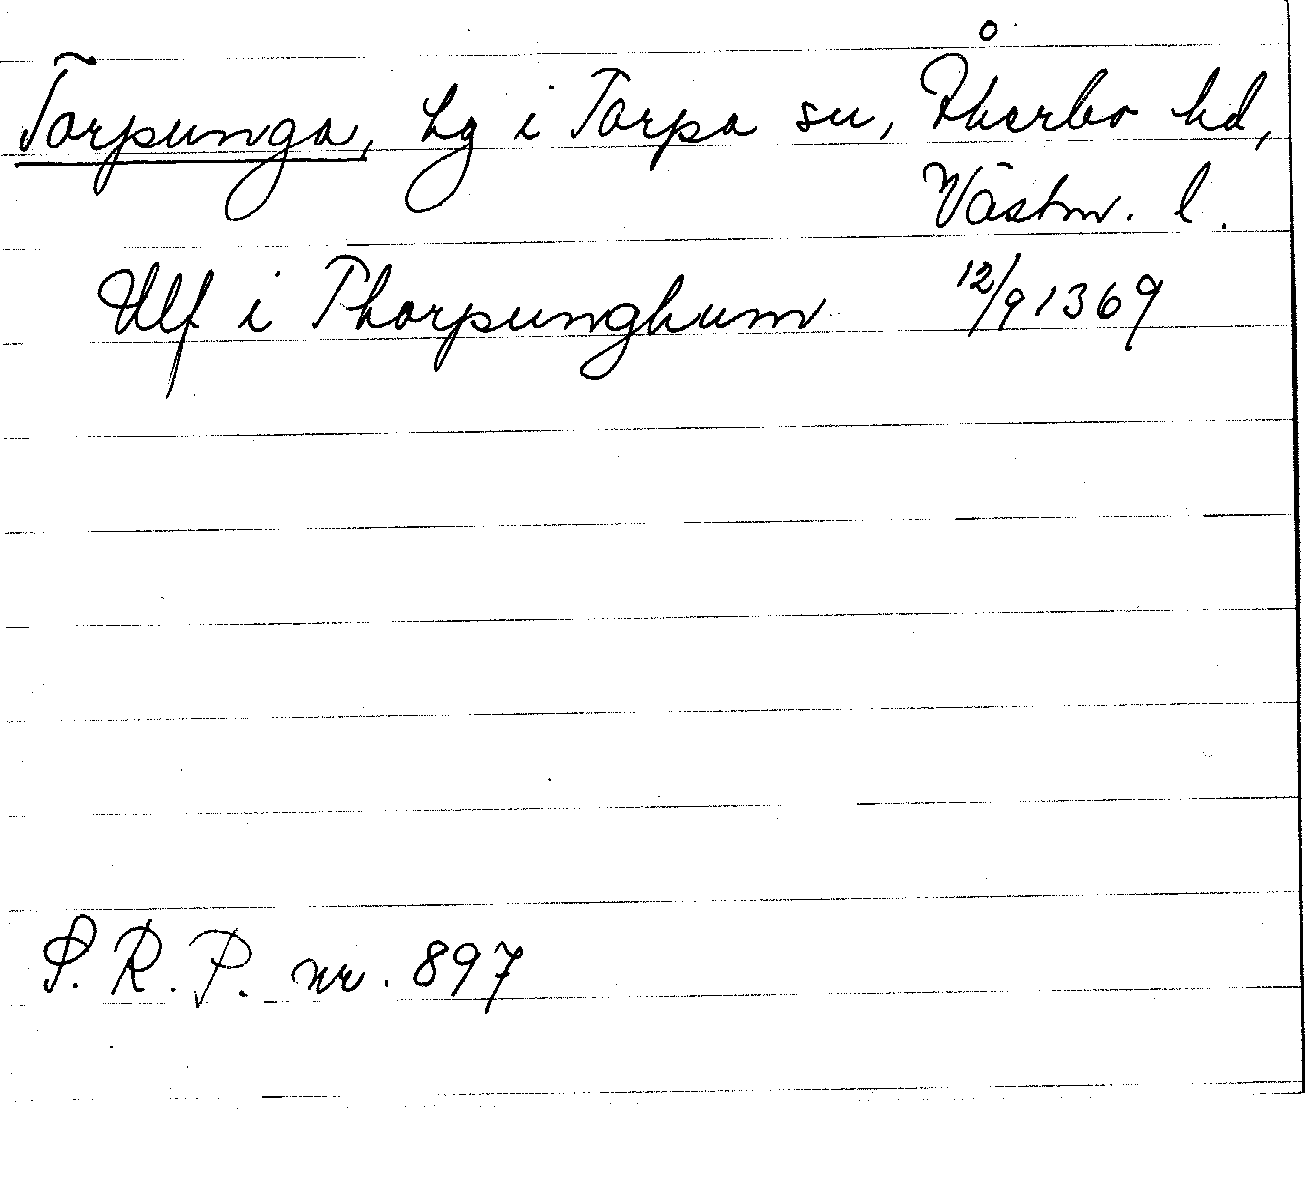 Torpunga, by i Torpa sn, Åkerbo hd,
Västm. l.
Ulf i Thorpunghum 12/9 1369
S. R. P. nr. 897